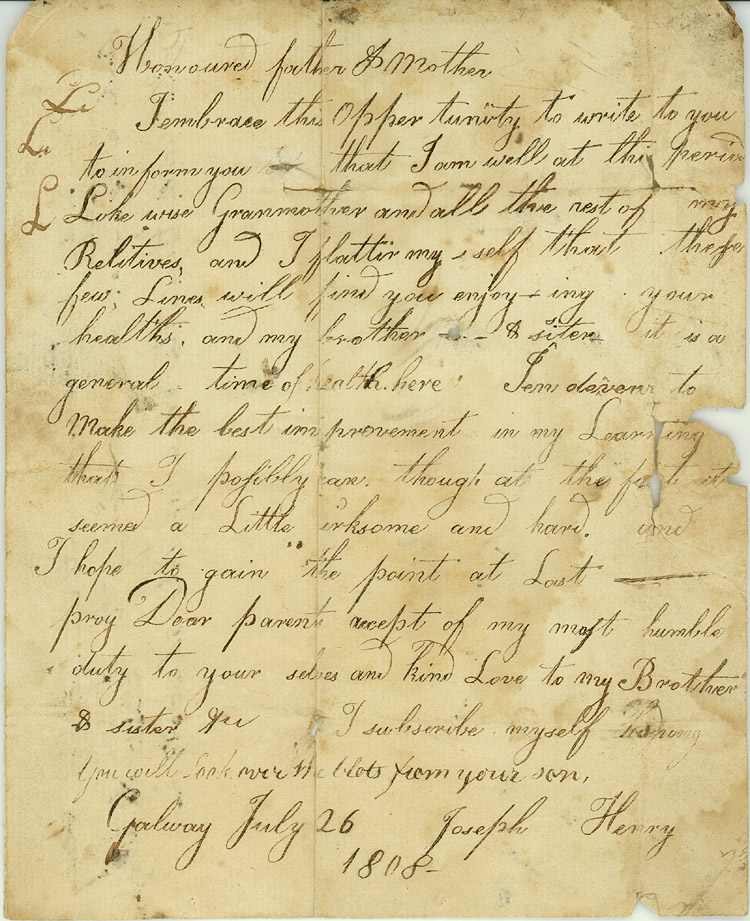 Honoured father & Mother
I embrace this Opper tunity to write to you
to inform you that I am well at this period
Like wise Granmother and all the rest of my
Relitives, and I flattir my self that these
few Lines will find you enjoy - ing your
healths, and my brother - - & sister it is a
general time of health here I endevour to
Make the best im provement in my Learning
that I possibly can. though at the first it
seemed a Little irksome and hard. and
I hope to gain the point at Last
pray Dear parent acept of my most humble
duty to your selves and kind Love to my Brother
& sister &c I subscribe myself
you will look over the blots from your son,
Galway July 26 Joseph Henry
1808-